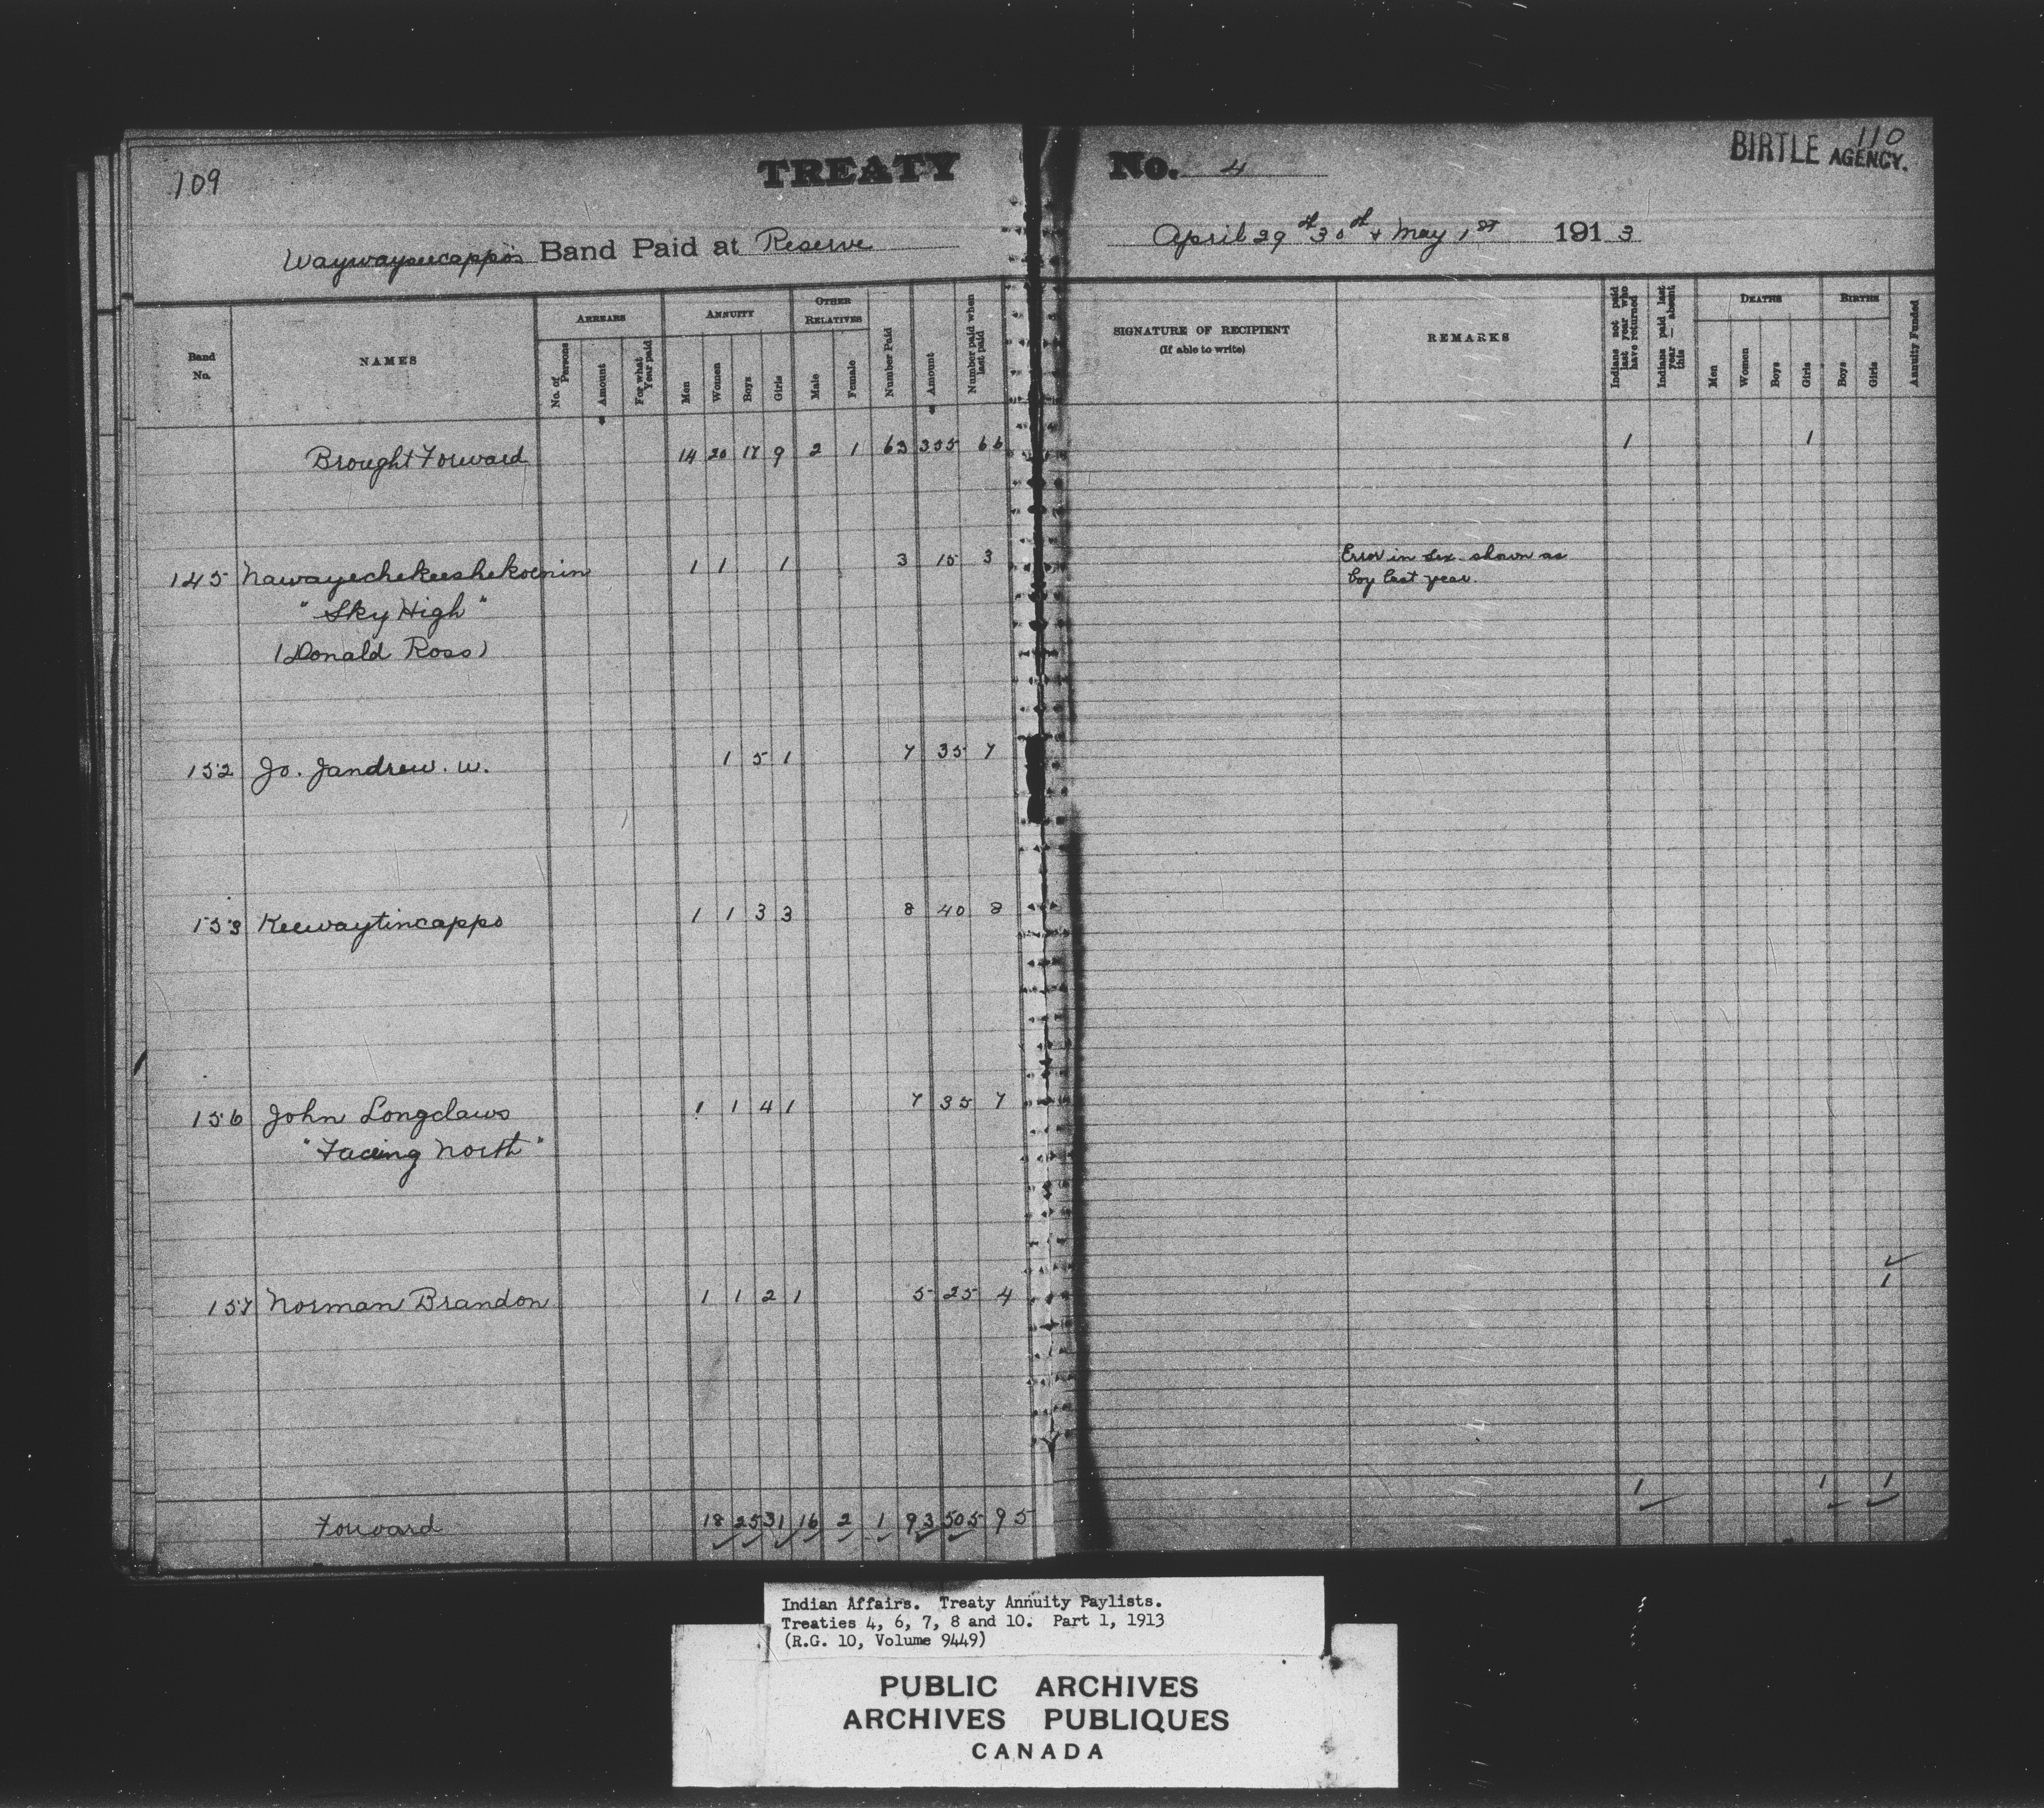 109
TREATY No. 4
BIRTLE AGENCY.
110
Waywayseecappo's Band Paid at Reserve
April 29th 30th & May 1st 1913
Band No.
NAMES
ARREARS
No. of Persons
Amount
For what Year paid
ANNUITY
Men
Women
Boys
Girls
OTHER RELATIVES
Male
Female
Number Paid
Amount
Number paid when last paid
SIGNATURE OF RECIPIENT
(If able to write)
REMARKS
Indians not paid last year who have returned
Indians paid last year — absent this
DEATHS
Men
Women
Boys
Girls
BIRTHS
Boys
Girls
Annuity Funded
Brought Forward 14 20 17 9 2 1 63 355 66 1 1
145 Nawayechekeeshekoenin 1 1 1 3 15 3 Error in sex shown as
boy last year.
"Sky High"
(Donald Ross)
152 Jo. Jandrew. W. 1 5 1 7 35 7
153 Keewaytincappo 1 1 3 3 8 40 8
156 John Longclaws 1 1 4 1 7 35 7
"Facing North"
157 Norman Brandon 1 1 2 1 5 25 4 1
Forward 18 25 31 16 2 1 93 505 95 1 1 1
Indian Affairs. Treaty Annuity Paylists.
Treaties 4, 6, 7, 8 and 10. Part 1, 1913
(R.G. 10, Volume 9449)
PUBLIC ARCHIVES
ARCHIVES PUBLIQUES
CANADA